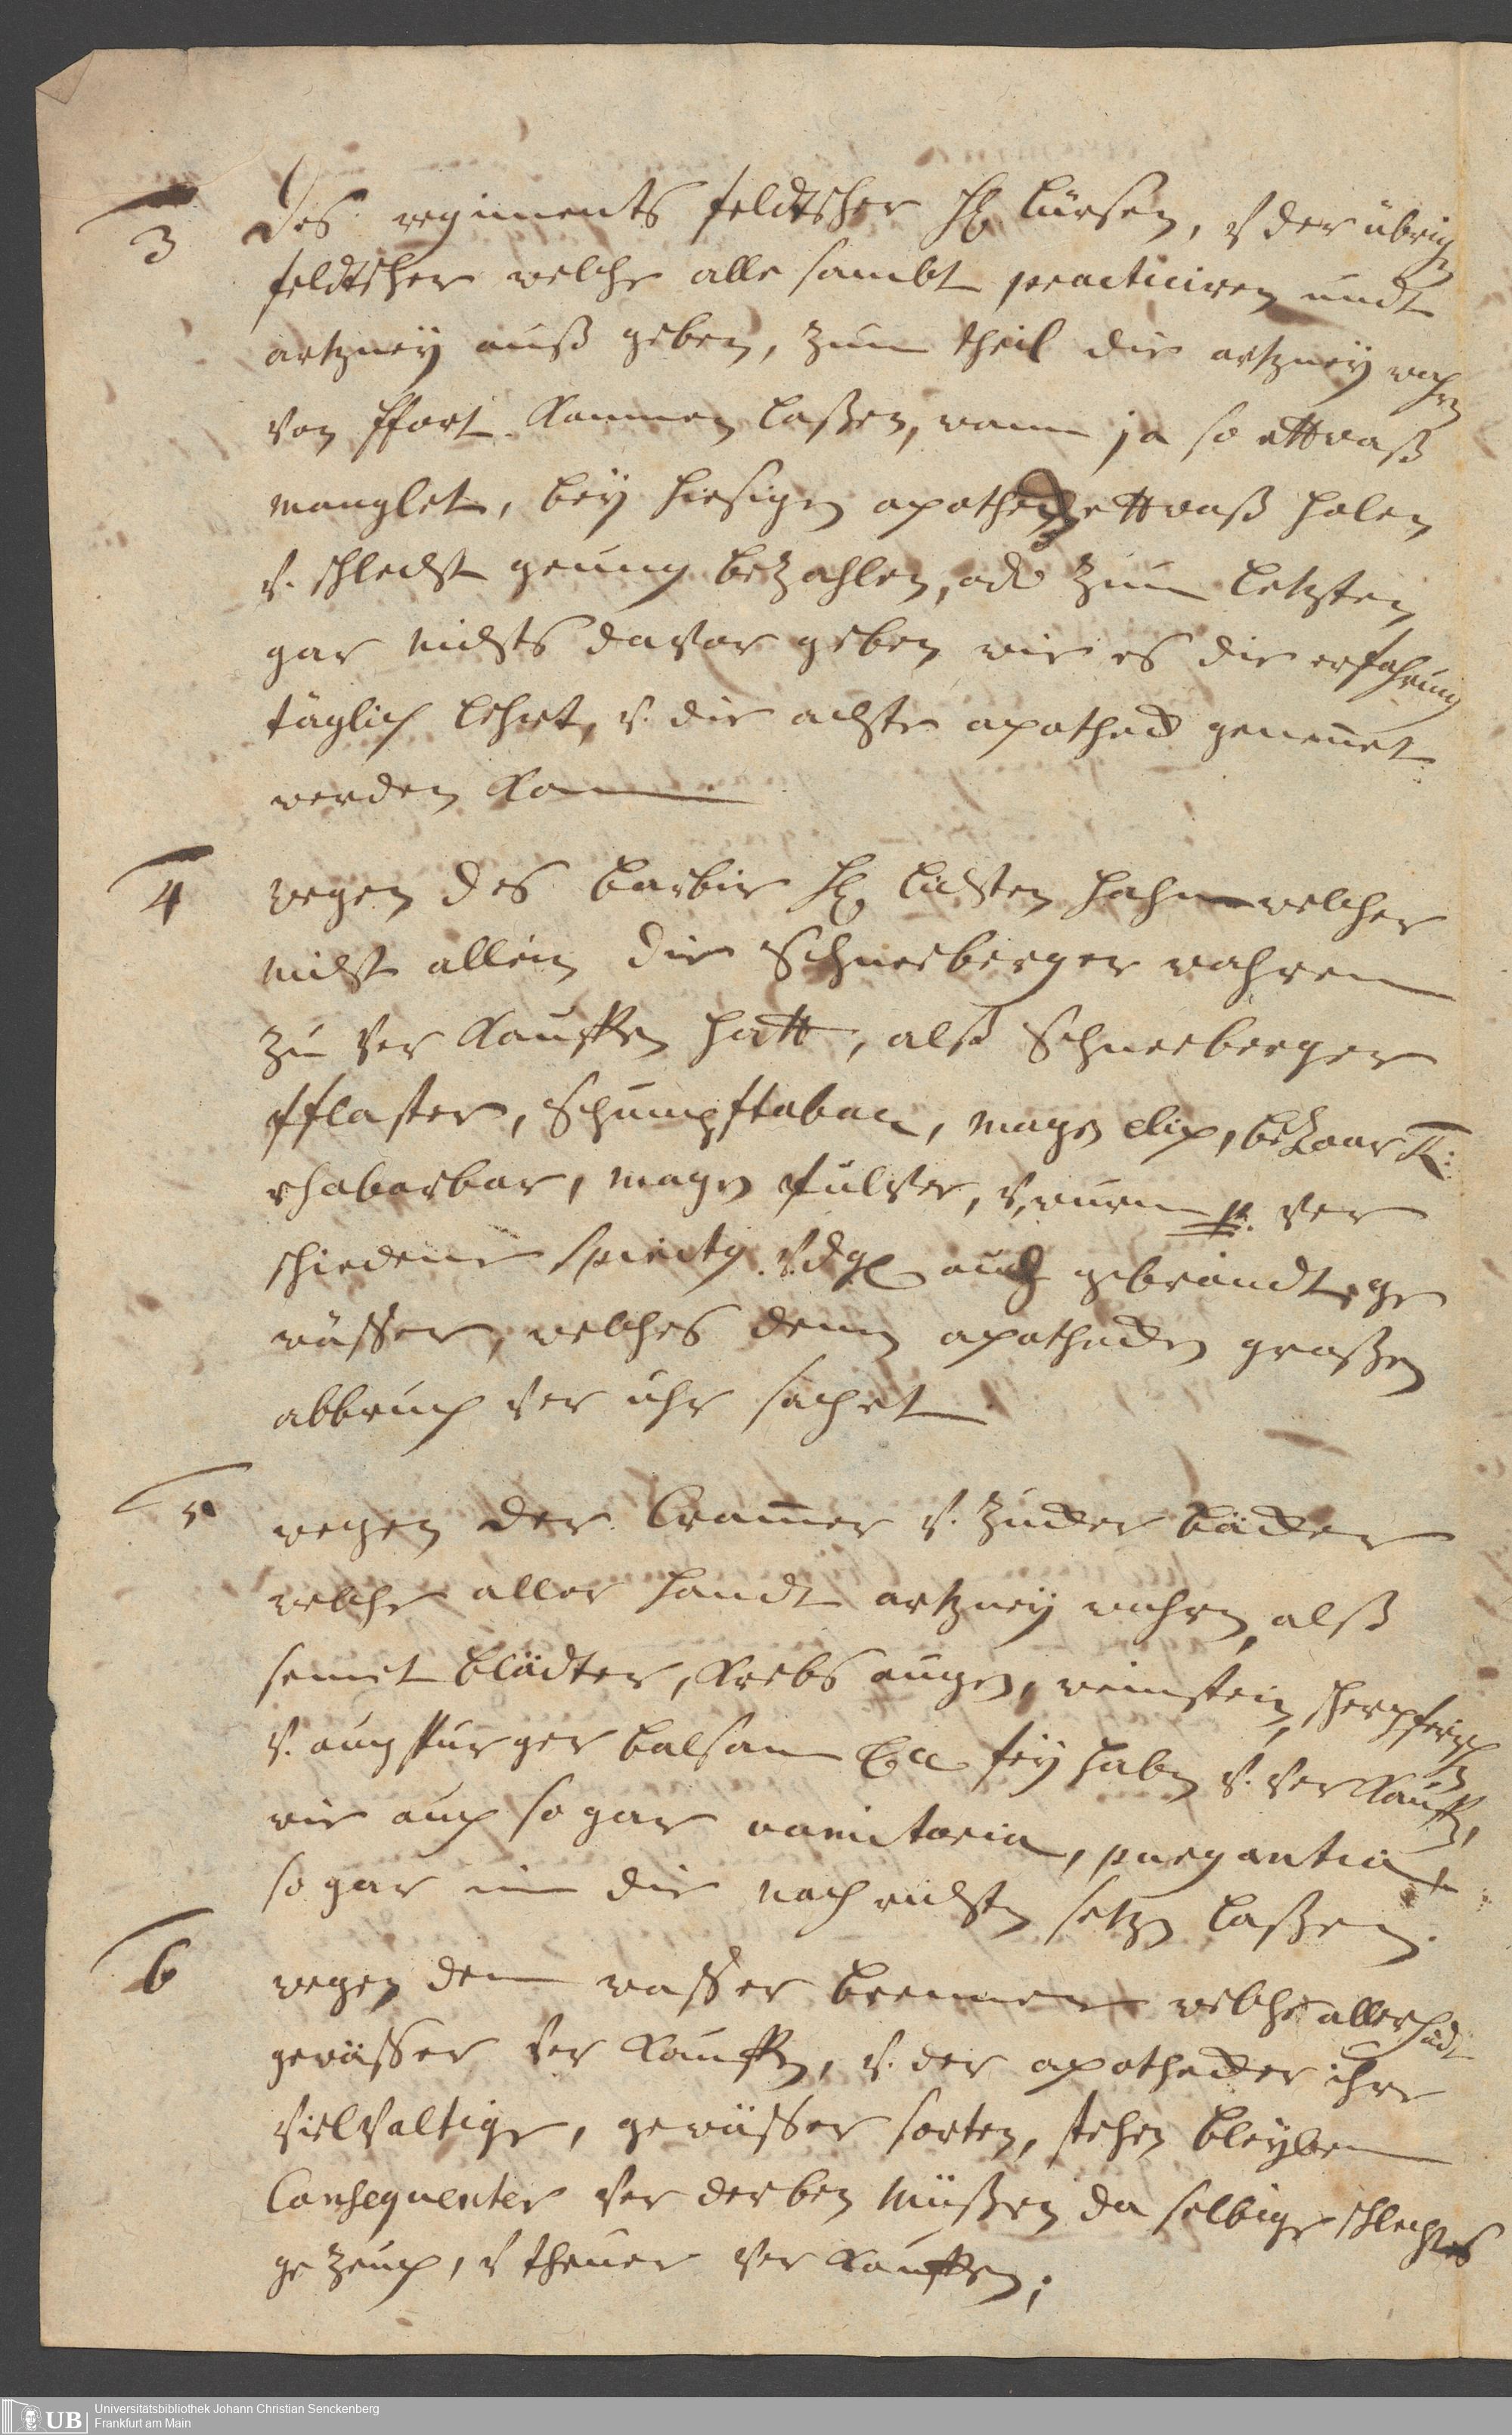 3
des regiments feldtscher H. Cürsen, v der übrig
feldtscher welche alle sambt practiciren undt
artzney auß geben, zum theil die artzney wahren
von ffort kommen laßen, wann ja so ettwaß
manglet, bey hiesigen apothecken ettwaß holen
v. schlecht genung bezahlen, od zum letzten
gar nichts davor geben wie es die erfahrung
täglich lehrt, v. die achte apotheck genennet
werden kan
4
wegen des barbir H. hahn welcher
nicht allein die Schneeberger wahren
zu ver kauffen hatt, alß Schneeberger
pflaster, Schnupftaback, magen elix, bezoar
rhabarbar, magen pulver, ver
schiedene spirity v. dgl auch gebrandte ge
wässer, welches denen apothecken großen
abbruch ver uhr sachet
5
wegen der Cramer v. Zucker bäcker
welche aller handt artzney wahren, alß
sennet blädter, Krebs augen, weinstein,
v. augspurger balsam &c feÿ haben v. ver kauffen,
wie auch so gar vomitoria, purgantia
so gar in die nachrichten setzen laßen.
6
wegen den wasser brenner welche allerhandt
gewässer ver kauffen, v. der apothecker ihre
vielvaltige, gewässer sorten, stehen bleyben
Consequenter ver derben müßen da selbige schlechtes
ge zeuch, v theuer ver kauffen;
Universitätsbibliothek Johann Christian Senckenberg
Frankfurt am Main
UB